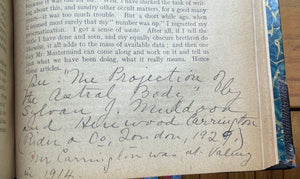 more, I should have shirked the task of writ-
this, and sundry other occult matters for these
it was too much trouble. But a short while ago, when
most sure that my "number was up," I regretted my
procrastination. I got a sense of waste. After all, if I tell the
I have done and seen, and my equally obscure brethren do
likewise, it adds to the mass of available data; and then one
Mastermind can come along and work on it and tell us
what we have been doing, what it really means. Hence
these articles.
See "The Projection of
the Astral Body" by
Sylvan J. Muldoon
and Hereward Carrington
Rider & Co, London, 1929)
Mr Carrington was at
in 1914.